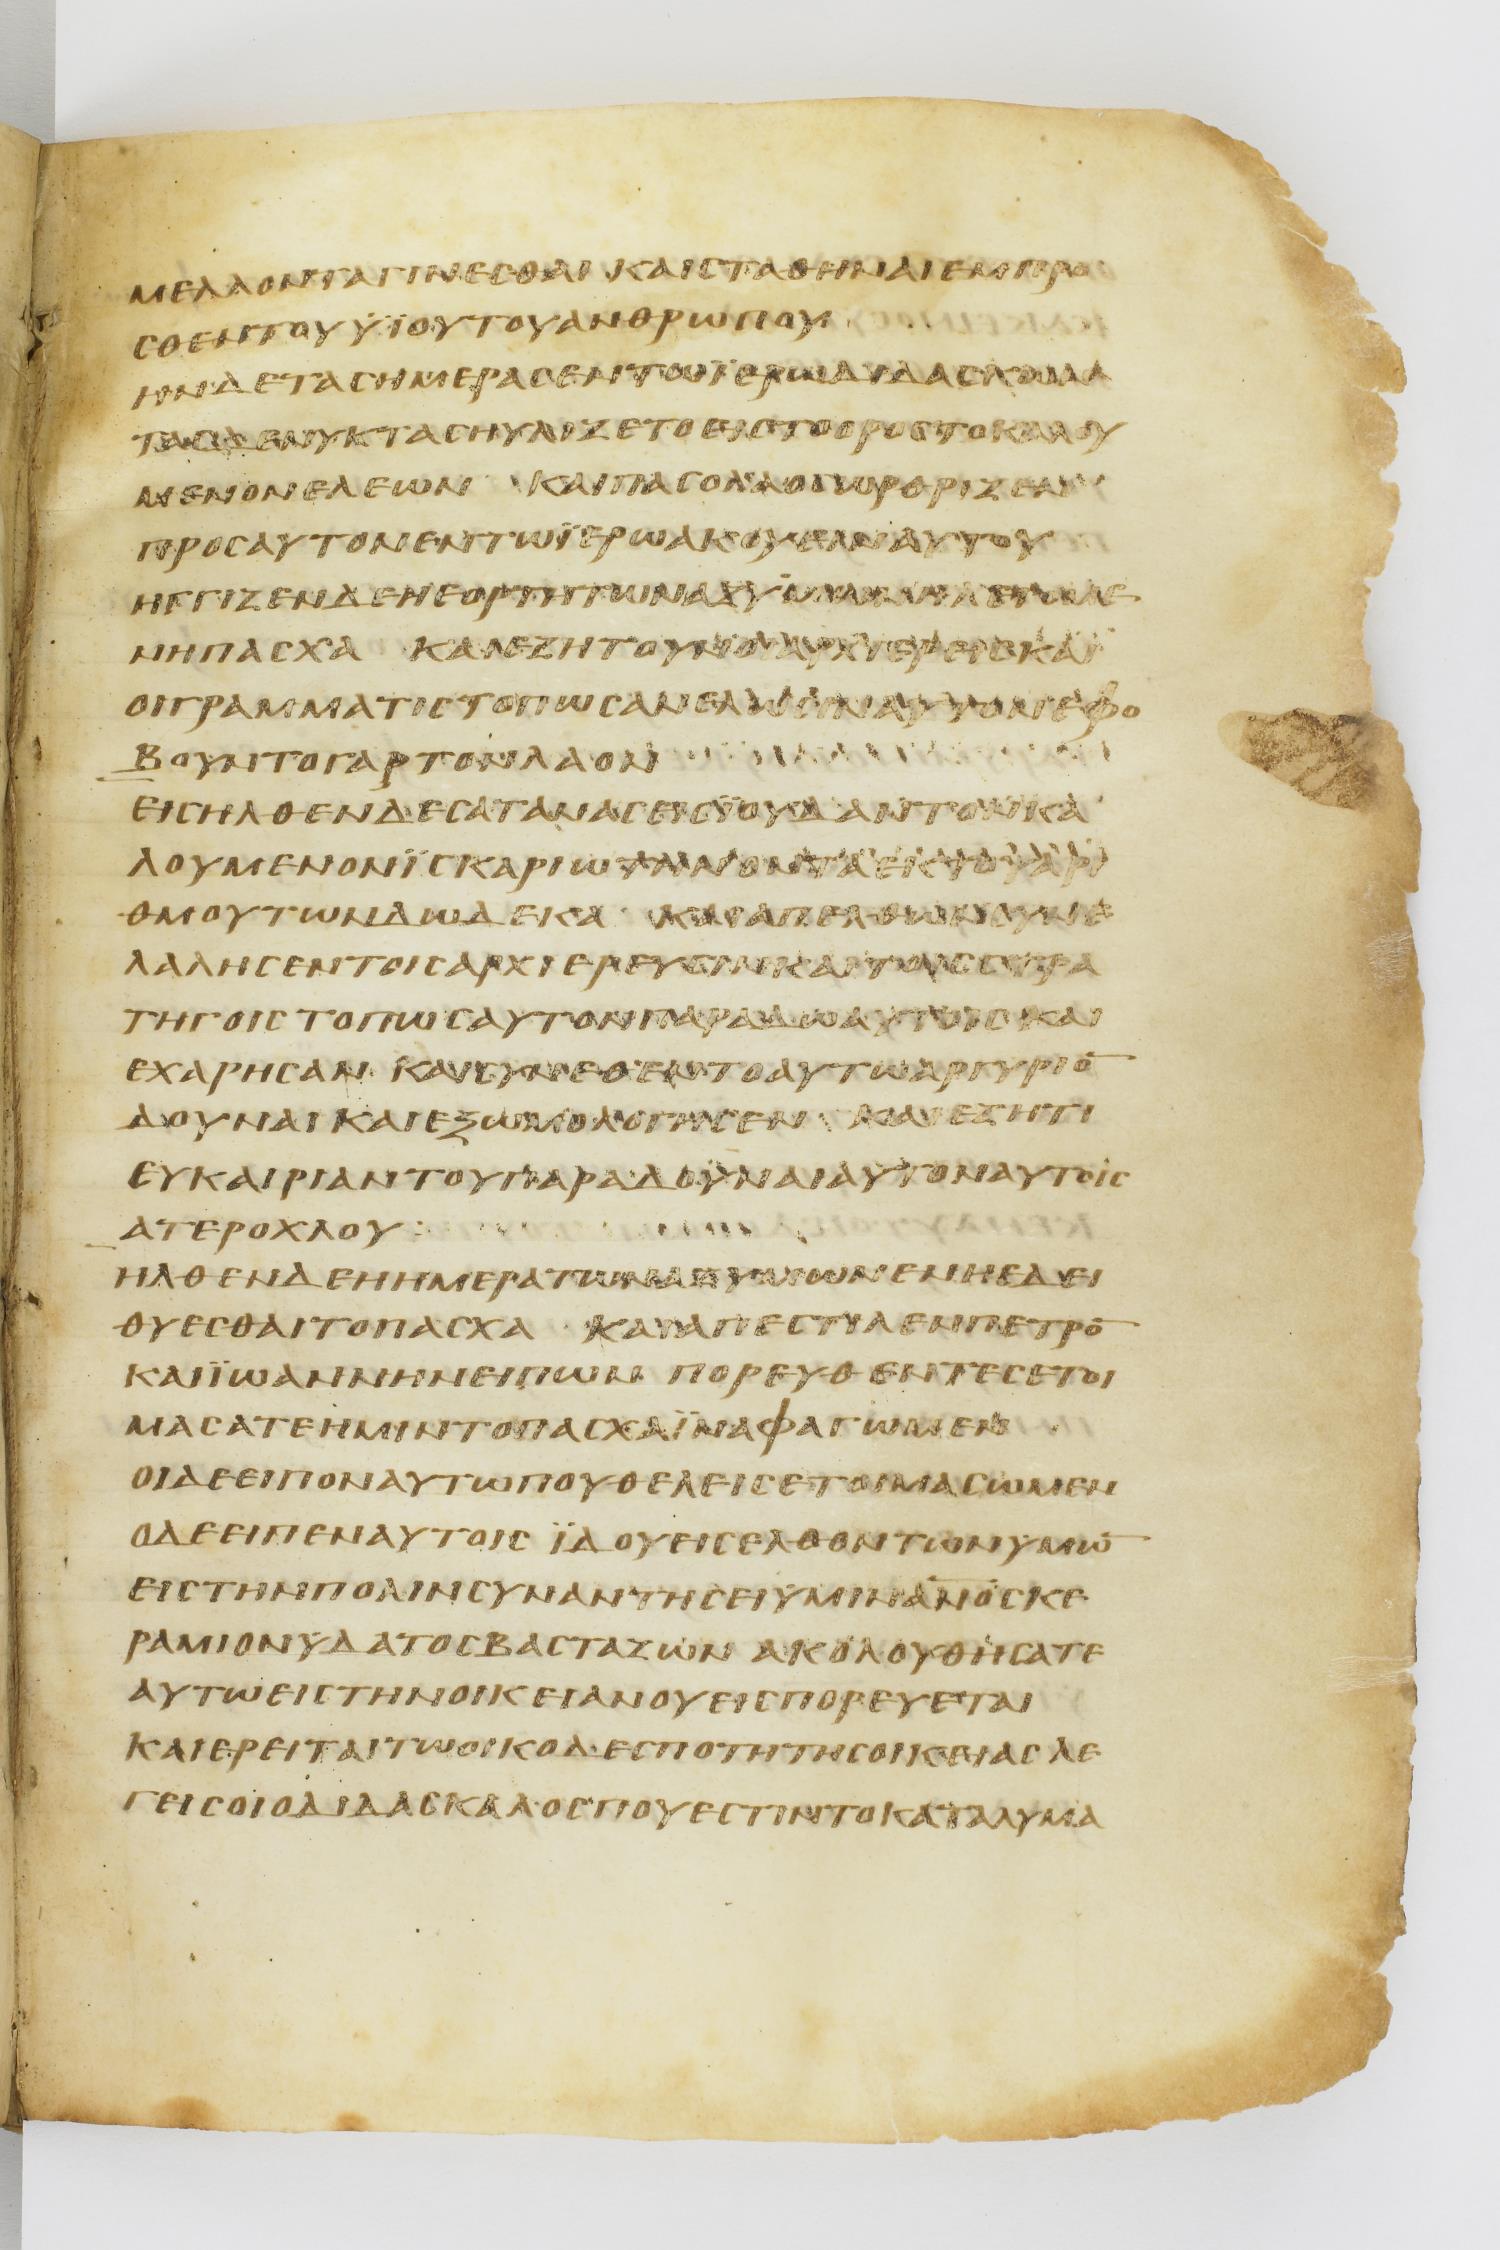 ΜΕΛΛΟΝΤΑΓΙΝΕCΘΑΙ ΚΑΙCΤΑΘΗΝΑΙΕΜΠΡΟ
CΘΕΝΤΟΥΫΪΟΥΤΟΥΑΝΘΡΩΠΟΥ
ΗΝΔΕΤΑCΗΜΕΡΑCΕΝΤΩΪΕΡΩΔΙΔΑCΚΩΝ
ΤΑCΔΕΝΥΚΤΑCΗΥΛΙΖΕΤΟΕΙCΤΟΟΡΟCΤΟΚΑΛΟΥ
ΜΕΝΟΝΕΛΕΩΝ ΚΑΙΠΑCΟΛΑΟCΩΡΘΡΙΖΕΝ
ΠΡΟCΑΥΤΟΝΕΝΤΩΪΕΡΩΑΚΟΥΕΙΝΑΥΤΟΥ
ΗΓΓΙΖΕΝΔΕΗΕΟΡΤΗΤΩΝΑΖΥΜΩΝΗΛΕΓΟΜΕ
ΝΗΠΑCΧΑ ΚΑΙΕΖΗΤΟΥΝΟΙΑΡΧΙΕΡΕΙCΚΑΙ
ΟΙΓΡΑΜΜΑΤΙCΤΟΠΩCΑΝΕΛΩCΙΝΑΥΤΟΝΕΦΟ
ΒΟΥΝΤΟΓΑΡΤΟΝΛΑΟΝ
ΕΙCΗΛΘΕΝΔΕCΑΤΑΝΑCΕΙCΪΟΥΔΑΝΤΟΝΚΑ
ΛΟΥΜΕΝΟΝΪCΚΑΡΙΩΤΗΝΟΝΤΑΕΚΤΟΥΑΡΙ
ΘΜΟΥΤΩΝΔΩΔΕΚΑ ΚΑΙΑΠΕΛΘΩΝCΥΝΕ
ΛΑΛΗCΕΝΤΟΙCΑΡΧΙΕΡΕΥCΙΝΚΑΙΤΟΙCCΤΡΑ
ΤΗΓΟΙCΤΟΠΩCΑΥΤΟΝΠΑΡΑΔΩΑΥΤΟΙCΚΑΙ
ΕΧΑΡΗCΑΝ ΚΑΙCΥΝΕΘΕΝΤΟΑΥΤΩΑΡΓΥΡΙΟ̅
ΔΟΥΝΑΙΚΑΙΕΞΩΜΟΛΟΓΗCΕΝ ΚΑΙΕΖΗΤΙ
ΕΥΚΑΙΡΙΑΝΤΟΥΠΑΡΑΔΟΥΝΑΙΑΥΤΟΝΑΥΤΟΙC
ΑΤΕΡΟΧΛΟΥ:
ΗΛΘΕΝΔΕΗΗΜΕΡΑΤΩΝΑΖΥΜΩΝΕΝΗΕΔΕΙ
ΘΥΕCΘΑΙΤΟΠΑCΧΑ ΚΑΙΑΠΕCΤΙΛΕΝΠΕΤΡΟ̅
ΚΑΙΪΩΑΝΝΗΝΕΙΠΩΝ ΠΟΡΕΥΘΕΝΤΕCΕΤΟΙ
ΜΑCΑΤΕΗΜΙΝΤΟΠΑCΧΑΪΝΑΦΑΓΩΜΕΝ
ΟΙΔΕΕΙΠΟΝΑΥΤΩΠΟΥΘΕΛΕΙCΕΤΟΙΜΑCΩΜΕΝ
ΟΔΕΕΙΠΕΝΑΥΤΟΙC ΪΔΟΥΕΙCΕΛΘΟΝΤΩΝΥΜΩ̅
ΕΙCΤΗΝΠΟΛΙΝCΥΝΑΝΤΗCΕΙΥΜΙΝΑ̅Ν̅Ο̅C̅ΚΕ
ΡΑΜΙΟΝΥΔΑΤΟCΒΑCΤΑΖΩΝ ΑΚΟΛΟΥΘΗCΑΤΕ
ΑΥΤΩΕΙCΤΗΝΟΙΚΕΙΑΝΟΥΕΙCΠΟΡΕΥΕΤΑΙ
ΚΑΙΕΡΕΙΤΑΙΤΩΟΙΚΟΔΕCΠΟΤΗΤΗCΟΙΚΕΙΑCΛΕ
ΓΕΙCΟΙΟΔΙΔΑCΚΑΛΟCΠΟΥΕCΤΙΝΤΟΚΑΤΑΛΥΜΑ